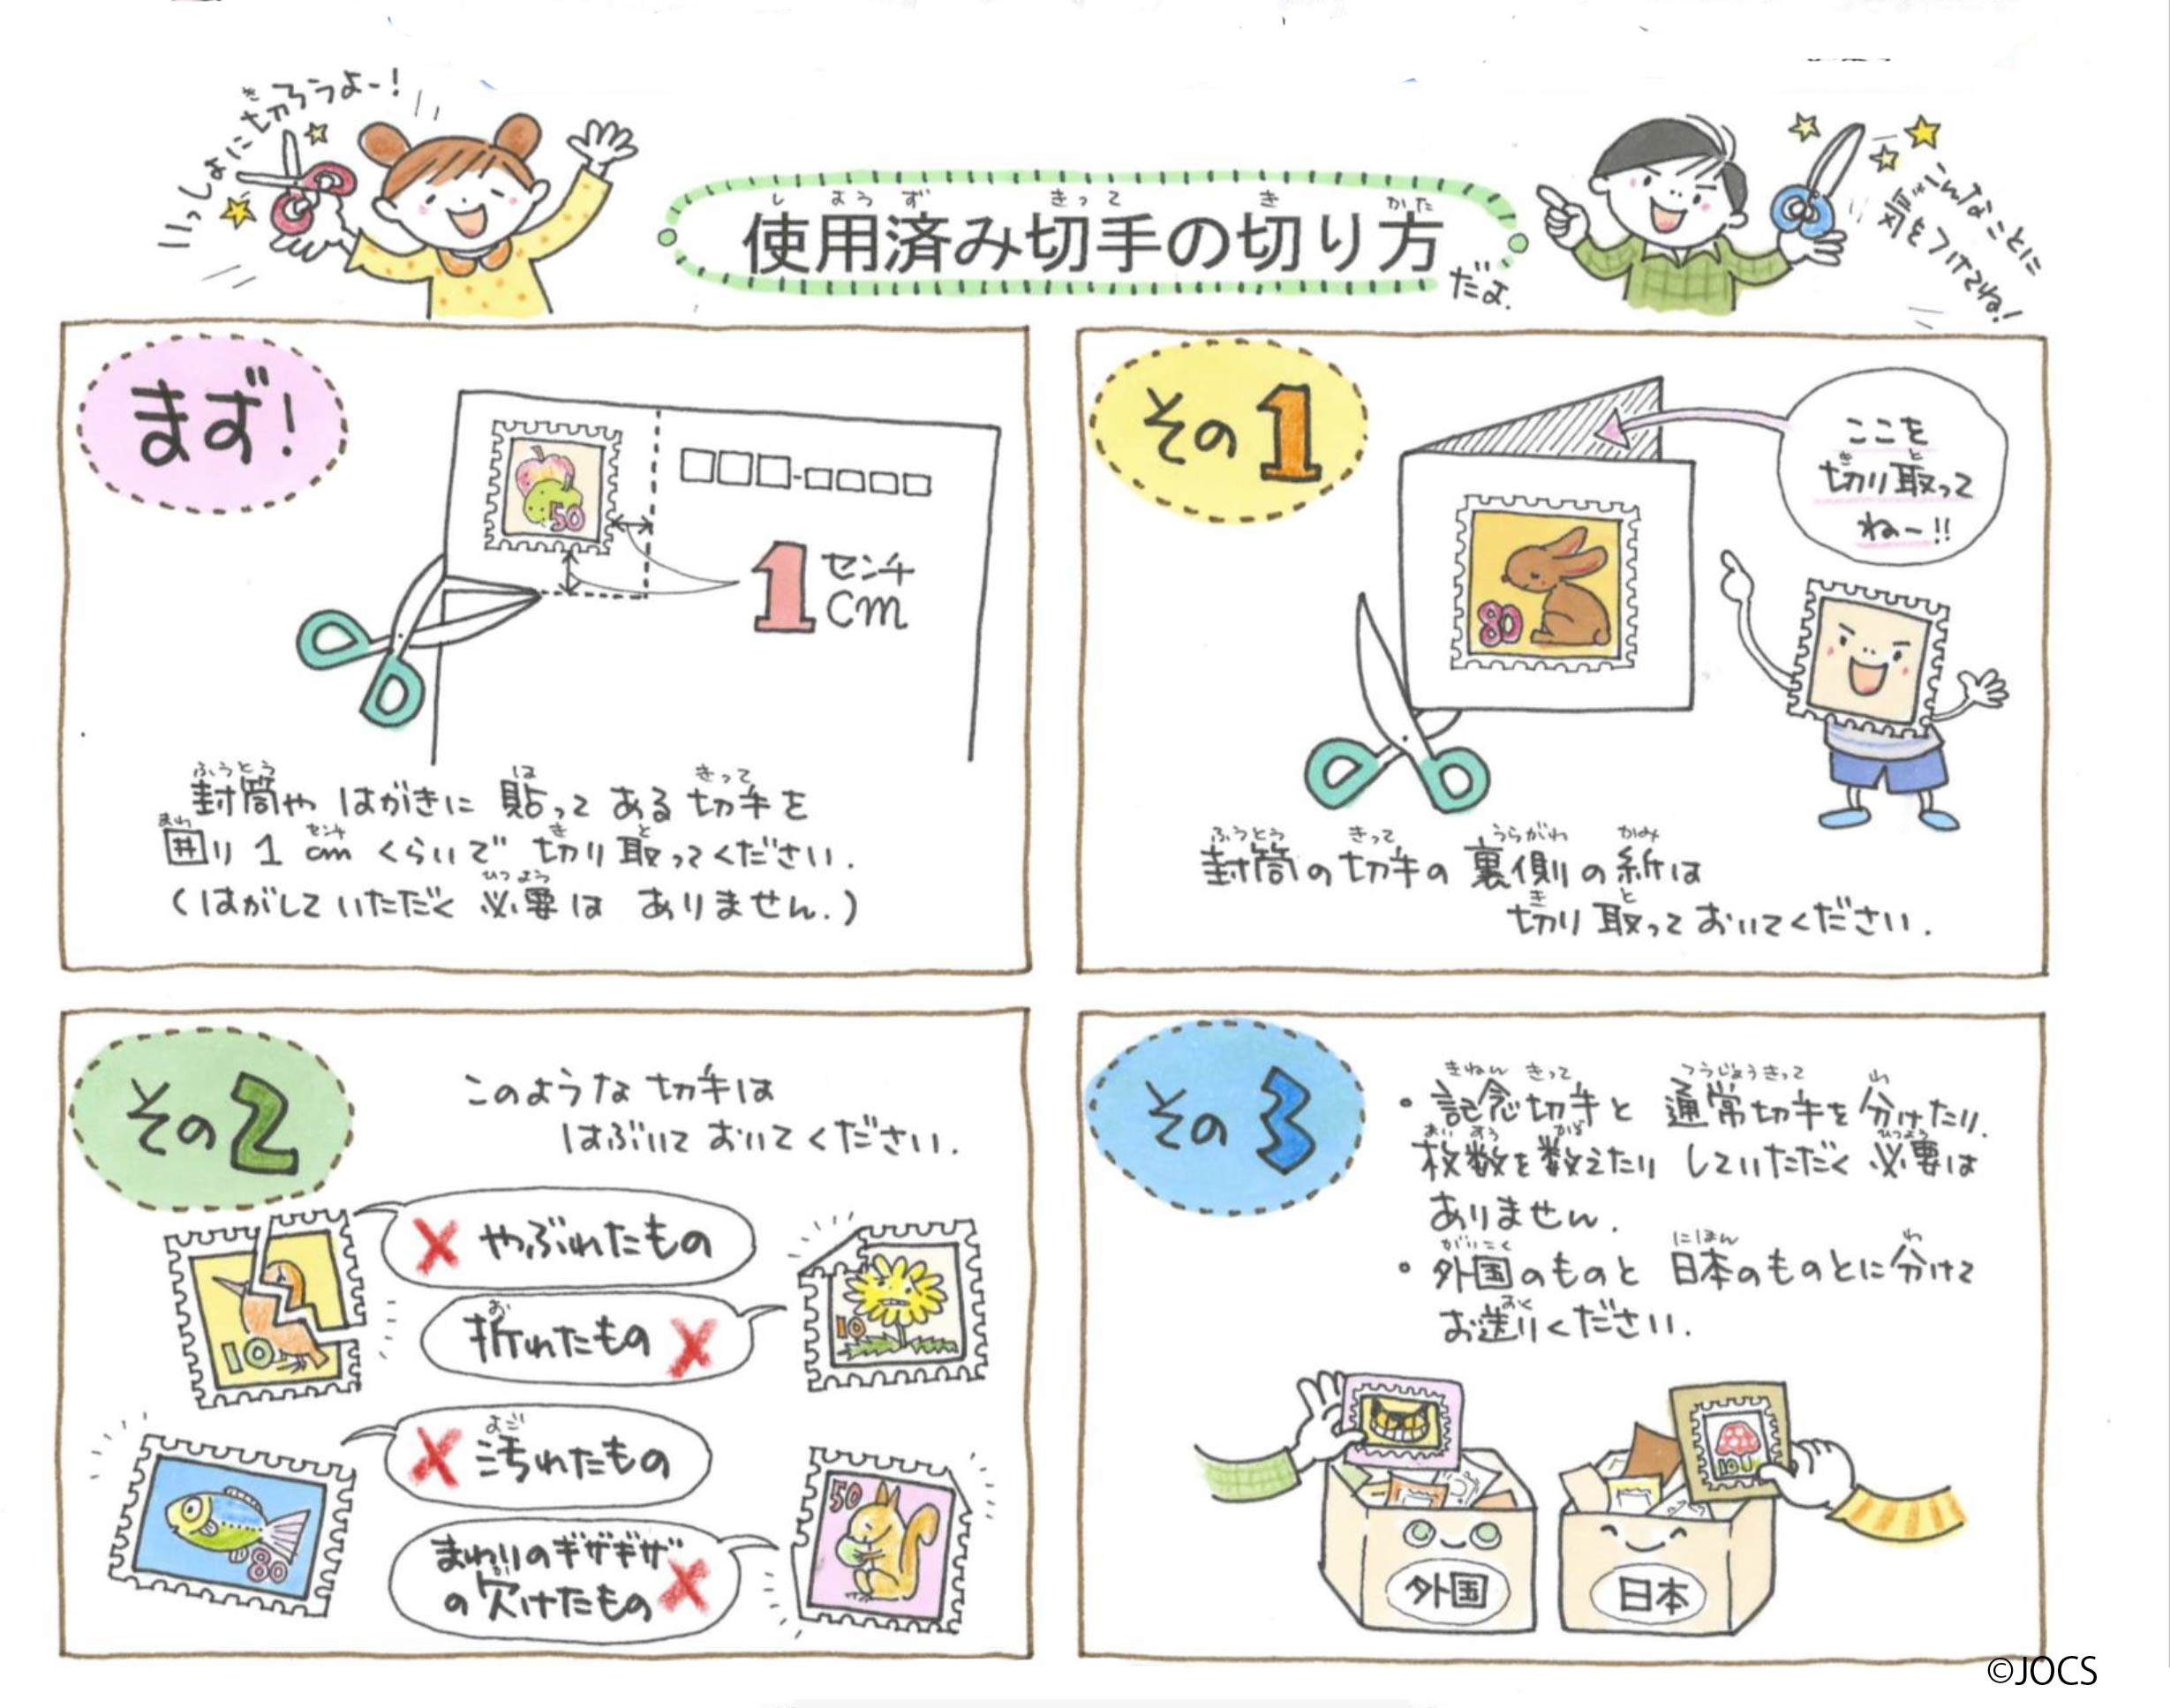 いっしょに切ろうよー!
使用済み切手の切り方
だよ.
こんなことに
気をつけてね!
まず!
50
1 センチ
cm
封筒や はがきに 貼って ある 切手を
囲り 1 cm くらいで 切り取ってください.
(はがして いただく 必要は ありません.)
その1
ここを
切り取って
ねー!!
80
封筒の切手の裏側の紙は
切り取っておいてください.
その2
このような 切手は
はぶいて おいてください.
× やぶれたもの
10
折れたもの ×
10
× 汚れたもの
80
まわりのギザギザ
の欠けたもの ×
50
その3
・記念切手と 通常切手を 分けたり.
枚数を数えたり していただく 必要は
ありません.
・外国のものと 日本のものとに分けて
お送りください.
10
外国
日本
©JOCS